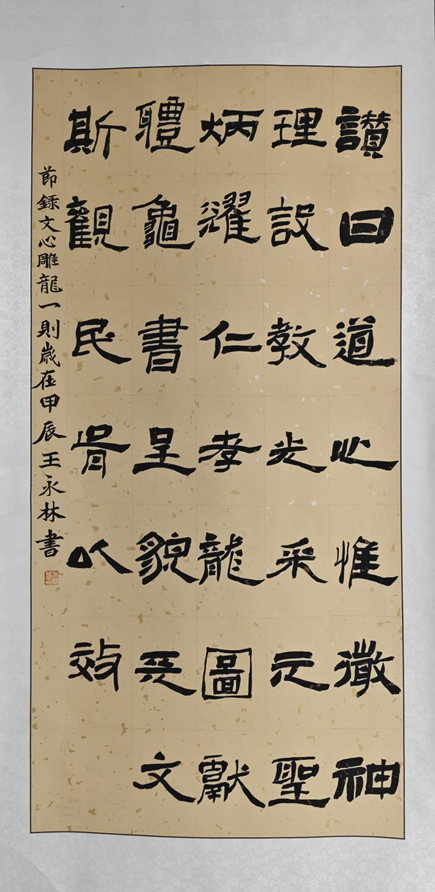 讚曰道心惟微神
理設教光采元聖
炳耀仁孝龍圖獻
體龜書呈貌天文
斯觀民胥以效
節錄文心雕龍一則歲在甲辰王永林書